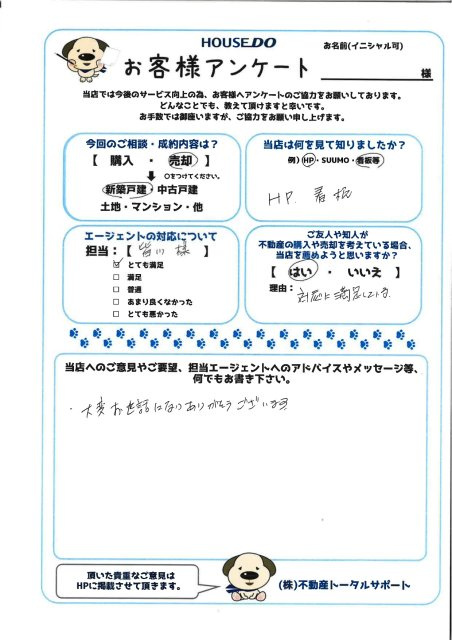 HOUSEDO
お名前(イニシャル可)
お客様アンケート
様
当店では今後のサービス向上の為、お客様へアンケートのご協力をお願いしております。
どんなことでも、教えて頂けますと幸いです。
お手数では御座いますが、ご協力をお願い申し上げます。
今回のご相談・成約内容は?
【 購入 ・ 売却 】
○をつけてください。
新築戸建・中古戸建
土地・マンション・他
当店は何を見て知りましたか?
例) HP・SUUMO・看板等
HP. 看板
エージェントの対応について
担当:【 皆川 様 】
とても満足
満足
普通
あまり良くなかった
とても悪かった
ご友人や知人が
不動産の購入や売却を考えている場合、
当店を薦めようと思いますか?
【 はい ・ いいえ 】
理由: 対応に満足している
当店へのご意見やご要望、担当エージェントへのアドバイスやメッセージ等、
何でもお書き下さい。
・大変お世話になりありがとうございます
頂いた貴重なご意見は
HPに掲載させて頂きます。
(株)不動産トータルサポート